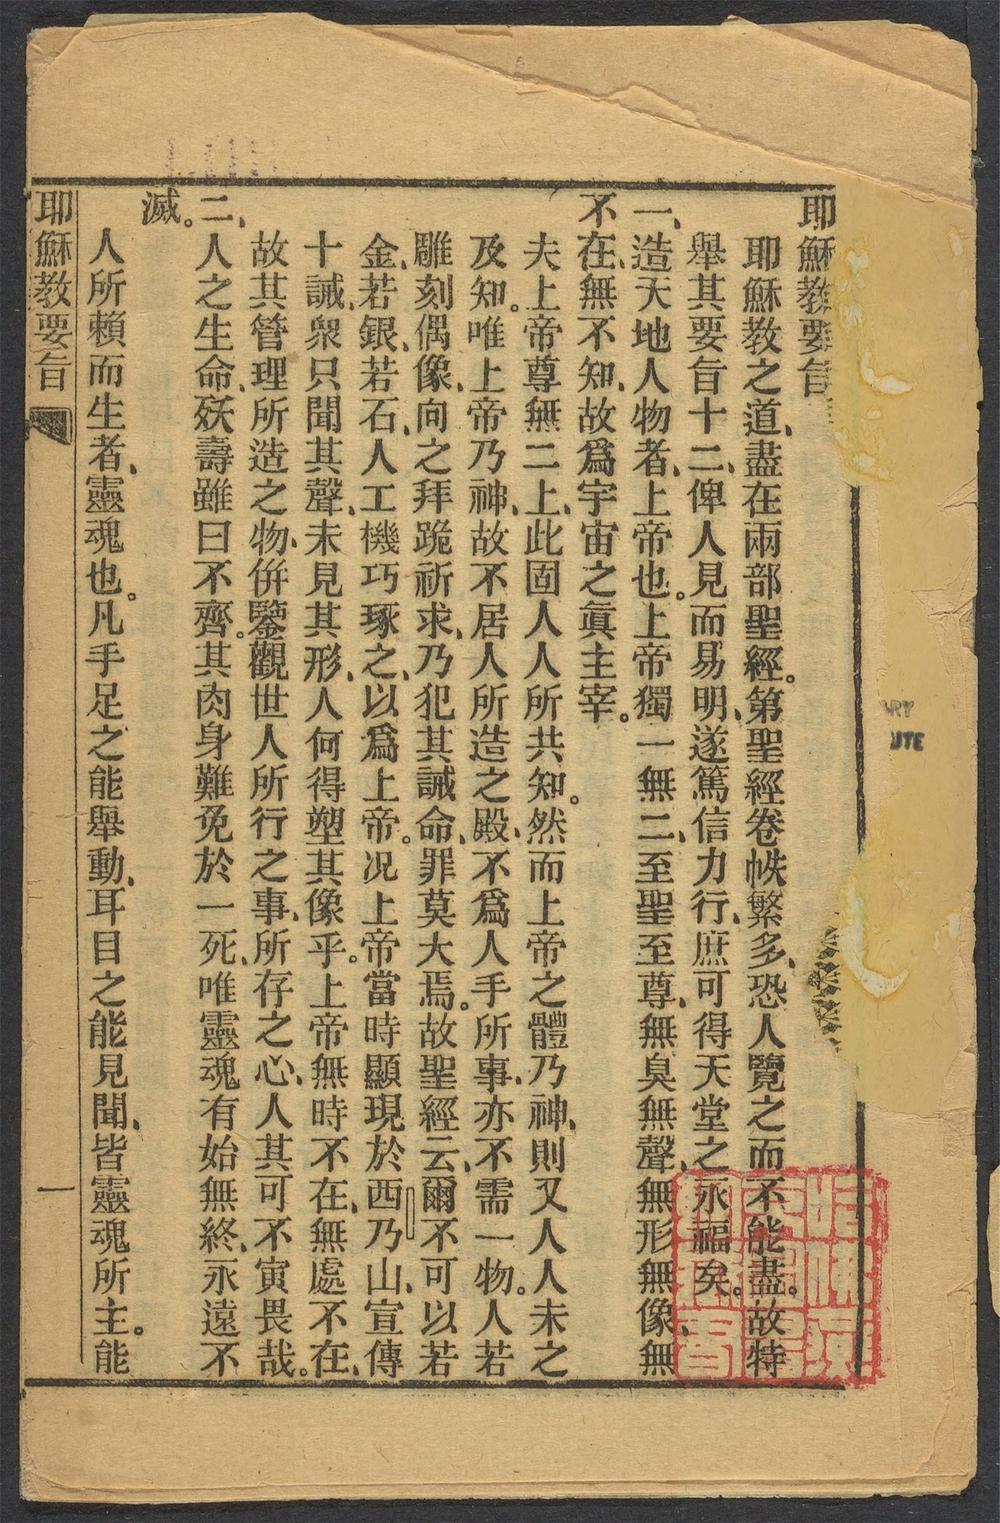 耶穌教要旨
耶穌教之道、盡在兩部聖經。第聖經卷帙繁多、恐人覽之而不能盡。故特
舉其要旨十二、俾人見而易明、遂篤信力行、庶可得天堂之永福矣。
一、造天地人物者、上帝也。上帝獨一無二、至聖至尊、無臭無聲、無形無像、無
不在、無不知、故爲宇宙之眞主宰。
夫上帝尊無二上、此固人人所共知。然而上帝之體乃神、則又人人未之
及知。唯上帝乃神、故不居人所造之殿、不爲人手所事、亦不需一物。人若
雕刻偶像、向之拜跪祈求、乃犯其誡命、罪莫大焉。故聖經云、爾不可以若
金、若銀、若石、人工機巧琢之、以爲上帝。况上帝當時顯現於西乃山、宣傳
十誡、衆只聞其聲、未見其形、人何得塑其像乎。上帝無時不在、無處不在、
故其管理所造之物、倂鑒觀世人所行之事、所存之心、人其可不寅畏哉。
二、人之生命、殀壽雖曰不齊。其肉身難免於一死、唯靈魂有始無終、永遠不
滅。
人所賴而生者、靈魂也。凡手足之能舉動、耳目之能見聞、皆靈魂所主。能
耶穌教要旨
一